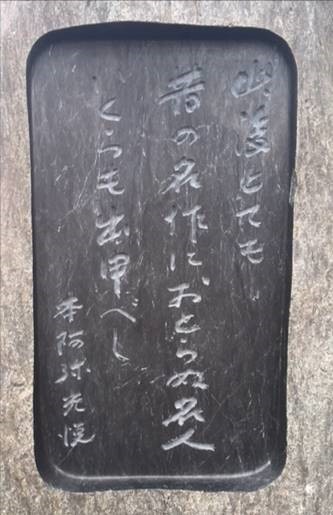 此後とても
昔の名作に、おとらぬ名人
いくらも出申べし
本阿弥光悦